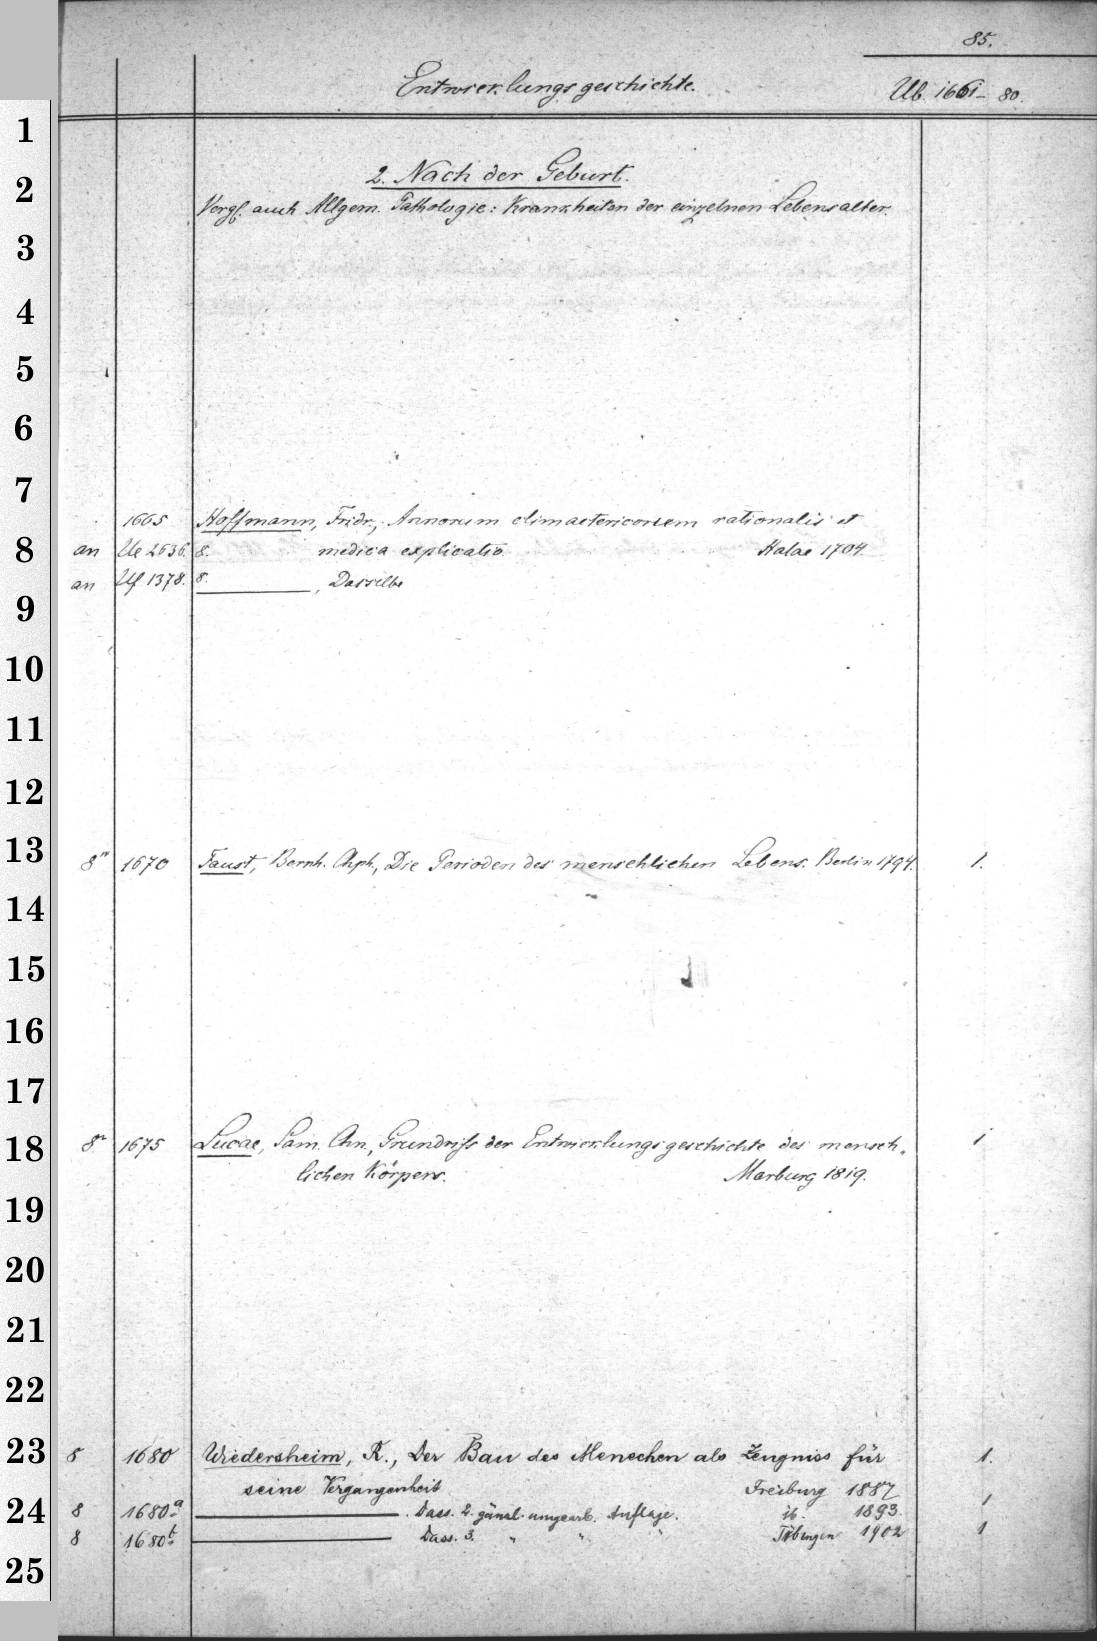 85.
Entwicklungsgeschichte. Ub. 1661-80.
1
2. Nach der Geburt.
2
Vergl. auch Allgem. Pathologie: Krankheiten der einzelnen Lebensalter.
3
4
5
6
7
1665 Hoffmann, Fridr., Annorum climactericorum rationalis et
8 an Ue 2636. 8. medica explicatio Halae 1704
an Uf 1378. 8. ———, Dasselbe
9
10
11
12
13 8° 1670 Faust, Bernh. Chph., Die Perioden des menschlichen Lebens. Berlin 1794. 1.
14
15
16
17
18 8° 1675 Lucae, Sam. Chn., Grundriss der Entwicklungsgeschichte des mensch- 1
lichen Körpers. Marburg 1819.
19
20
21
22
23 8 1680 Wiedersheim, R., Der Bau des Menschen als Zeugniss für 1.
seine Vergangenheit Freiburg 1887
24 8 1680a ———. Dass. 2. gänzl. umgearb. Auflage. ib. 1893. 1
8 1680b ——— Dass. 3. " " " Tübingen 1902 1
25